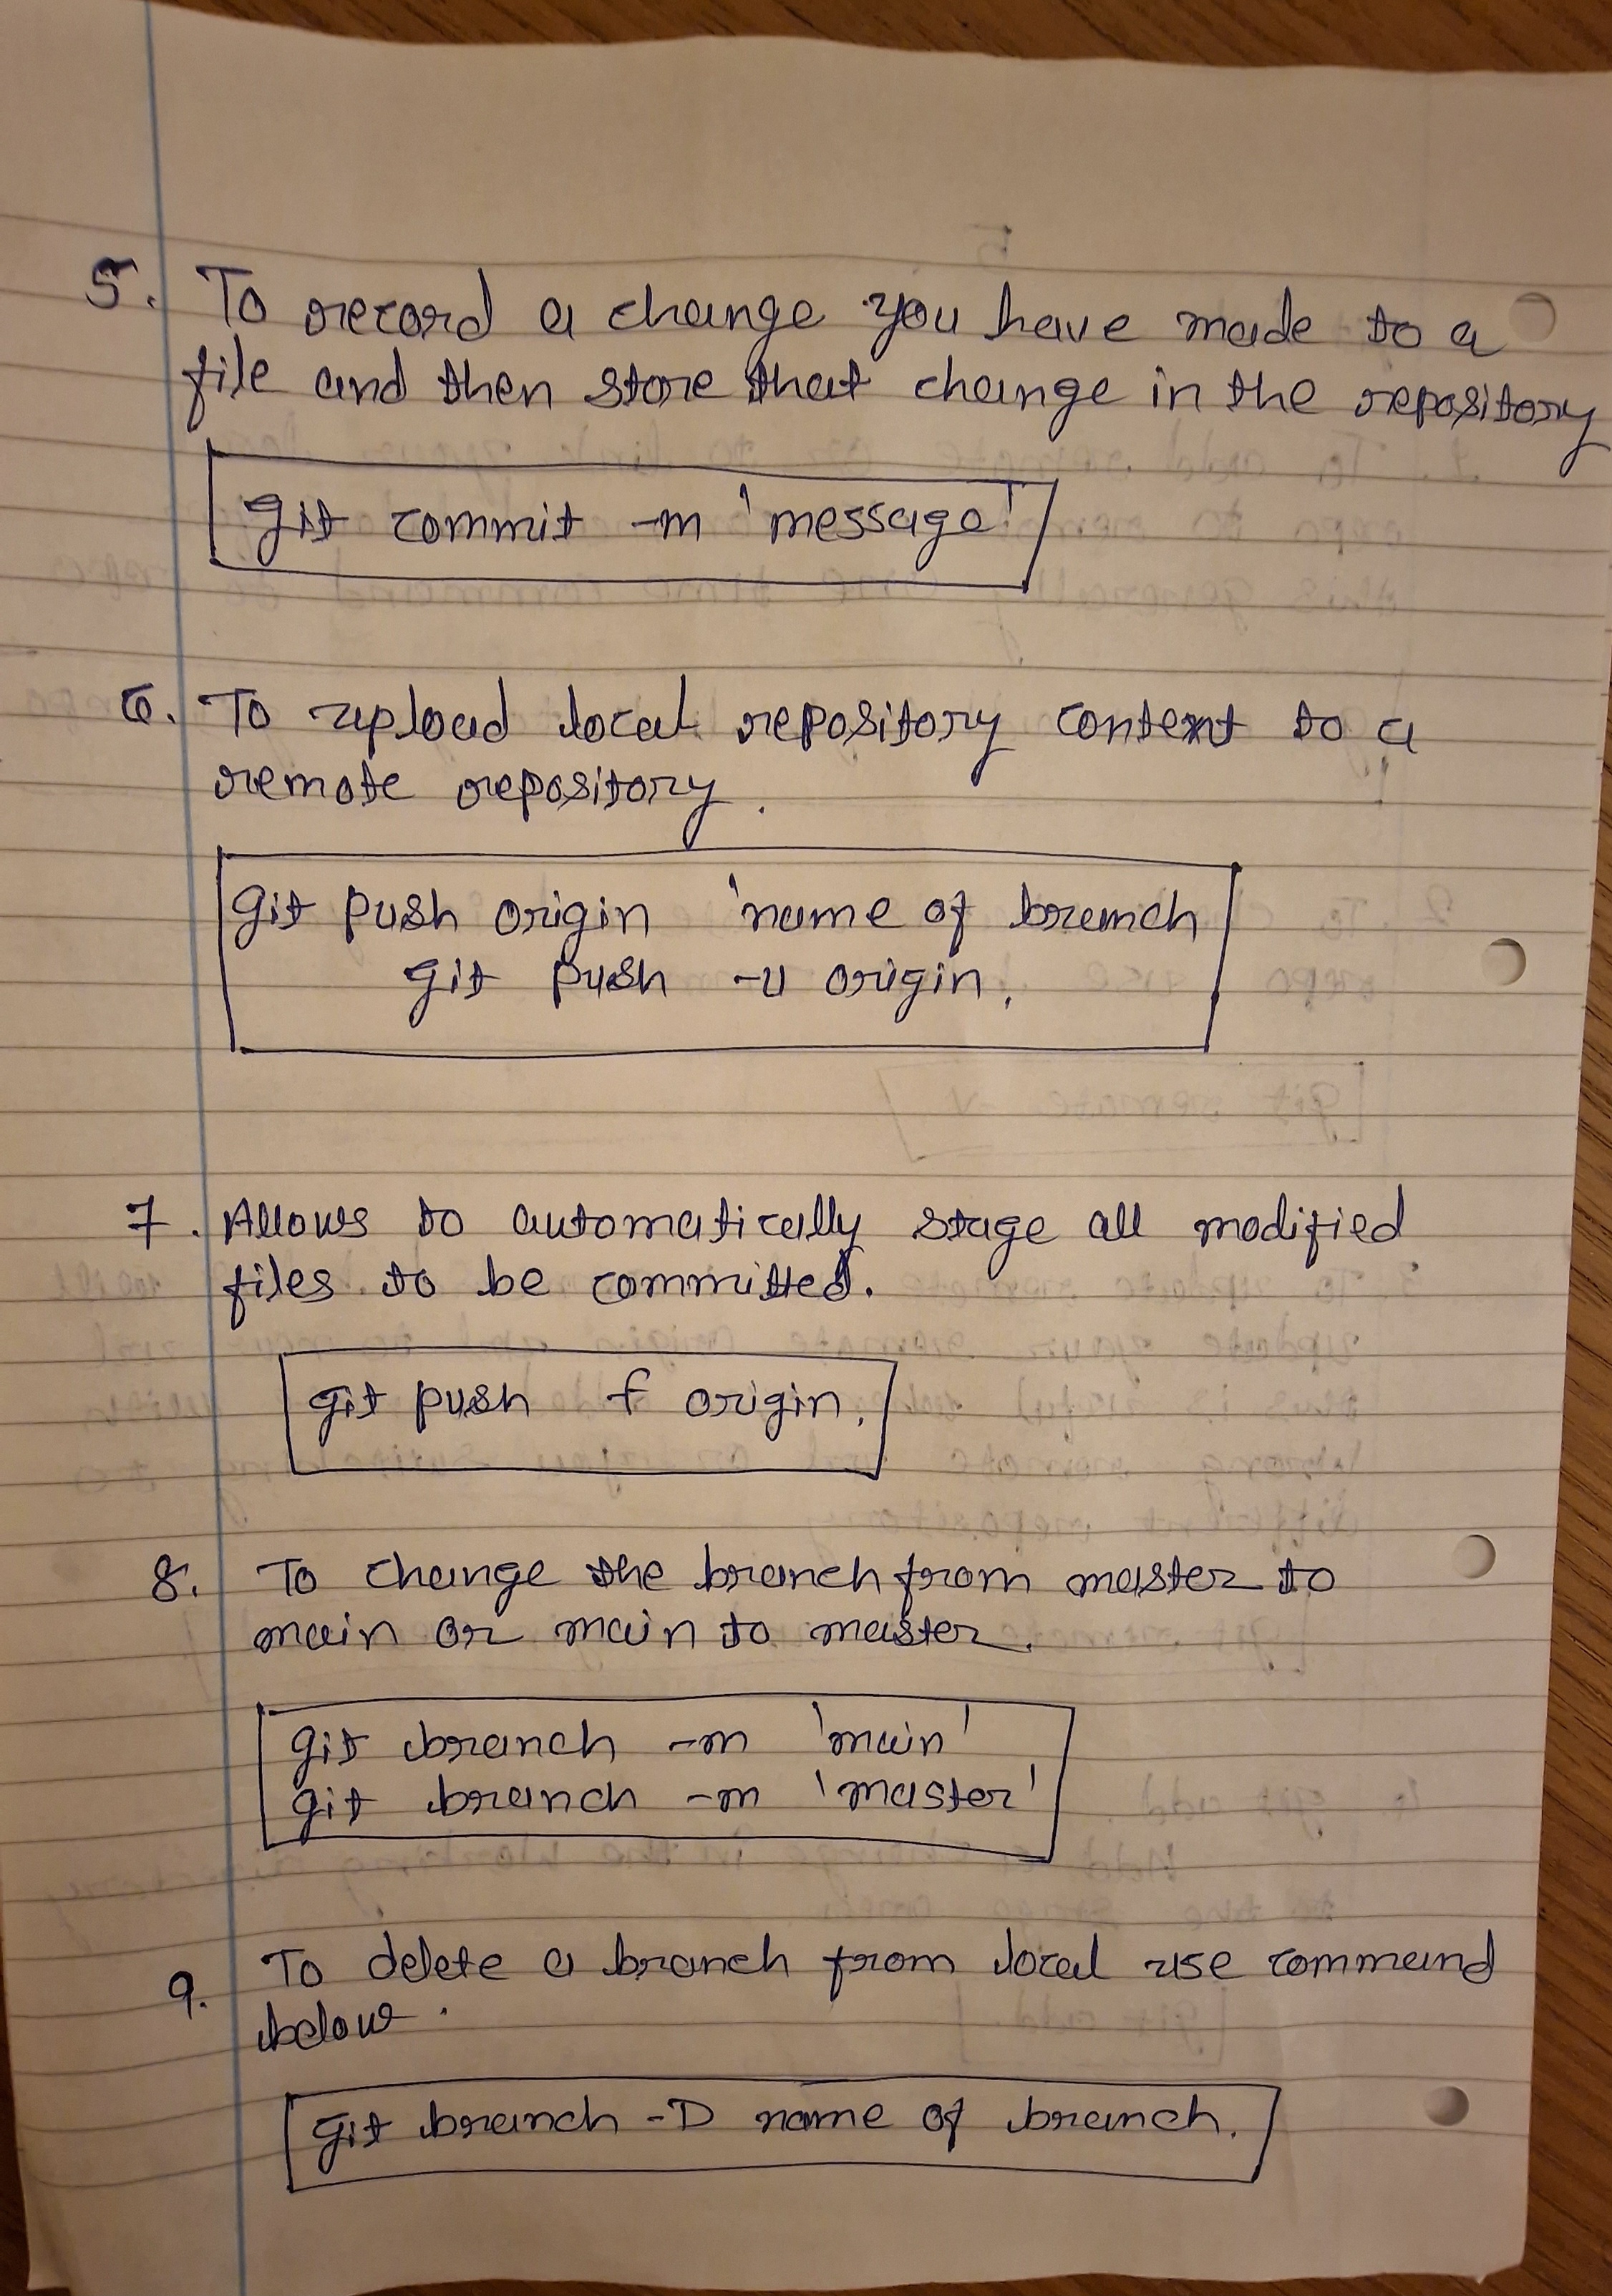 5. To record a change you have made to a
file and then store that change in the repository
git commit -m 'message'
6. To upload local repository content to a
remote repository.
git push origin 'name of branch
git push -u origin.
7. Allows to automatically stage all modified
files to be committed.
git push f origin.
8. To change the branch from master to
main or main to master.
git branch -m 'main'
git branch -m 'master'
9. To delete a branch from local use command
below.
git branch -D name of branch.